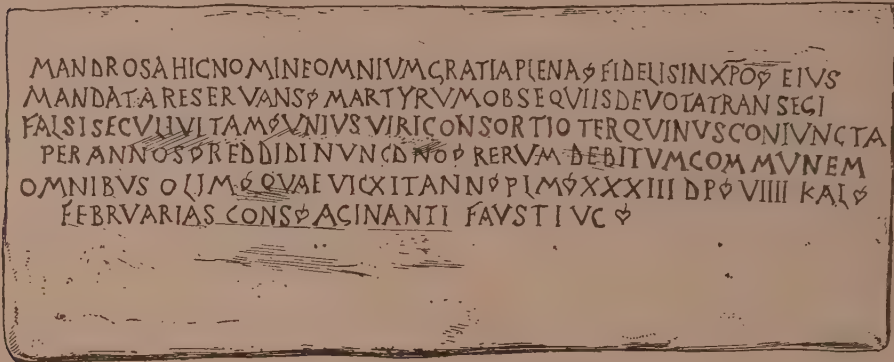 MANDROSA HIC NOMINE OMNIVM GRATIA PLENA ❧ FIDELIS IN XPO ❧ EIVS
MANDATA RESERVANS ❧ MARTYRVM OBSEQUIIS DEVOTA TRANSEGI
FALSI SECVLI VITAM ❧ VNIVS VIRI CONSORTIO TERQVINVS CONIVNCTA
PER ANNOS ❧ REDDIDI NVNC DNO ❧ RERVM DEBITVM COMMVNEM
OMNIBVS OLIM ❧ QVAE VICXIT ANN ❧ PLM ❧ XXXIII DP ❧ VIIII KAL ❧
FEBRVARIAS CONS ❧ AGINANTI FAVSTI VC ❧